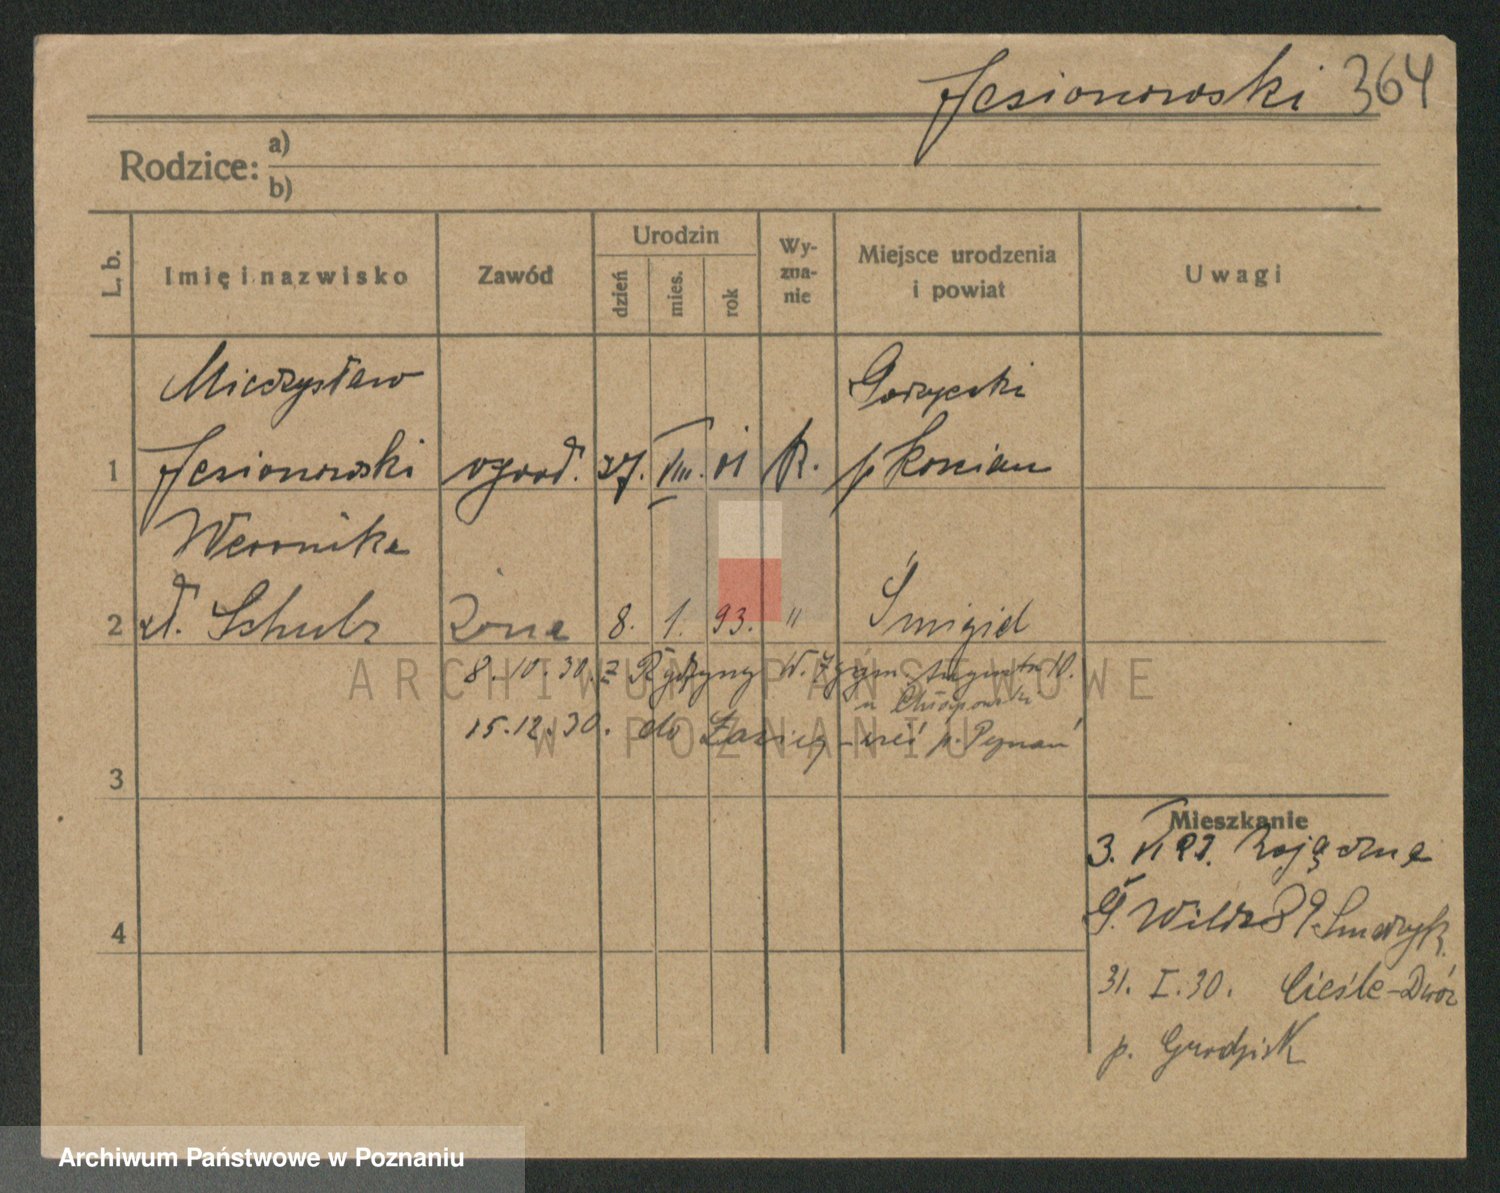 Jesionowski 364
Rodzice: a)
b)
L. b.
Imię i nazwisko
Zawód
Urodzin
dzień
mies.
rok
Wy-
zna-
nie
Miejsce urodzenia
i powiat
Uwagi
Mieczysław
Gorzyczki
1 Jesionowski ogrod. 27. VIII. 01 k. p Koscian
Weronika
2 zd. Schulz żona 8. 1. 93. " Śmigiel
8.10.30. z W.
15.12.30. do p. Poznań
3
Mieszkanie
3. VI
G. Wilda 89
4
31. I. 30. Cieśle-Dwór
p. Grodzisk
ARCHIWUM PAŃSTWOWE
W POZNANIU
Archiwum Państwowe w Poznaniu